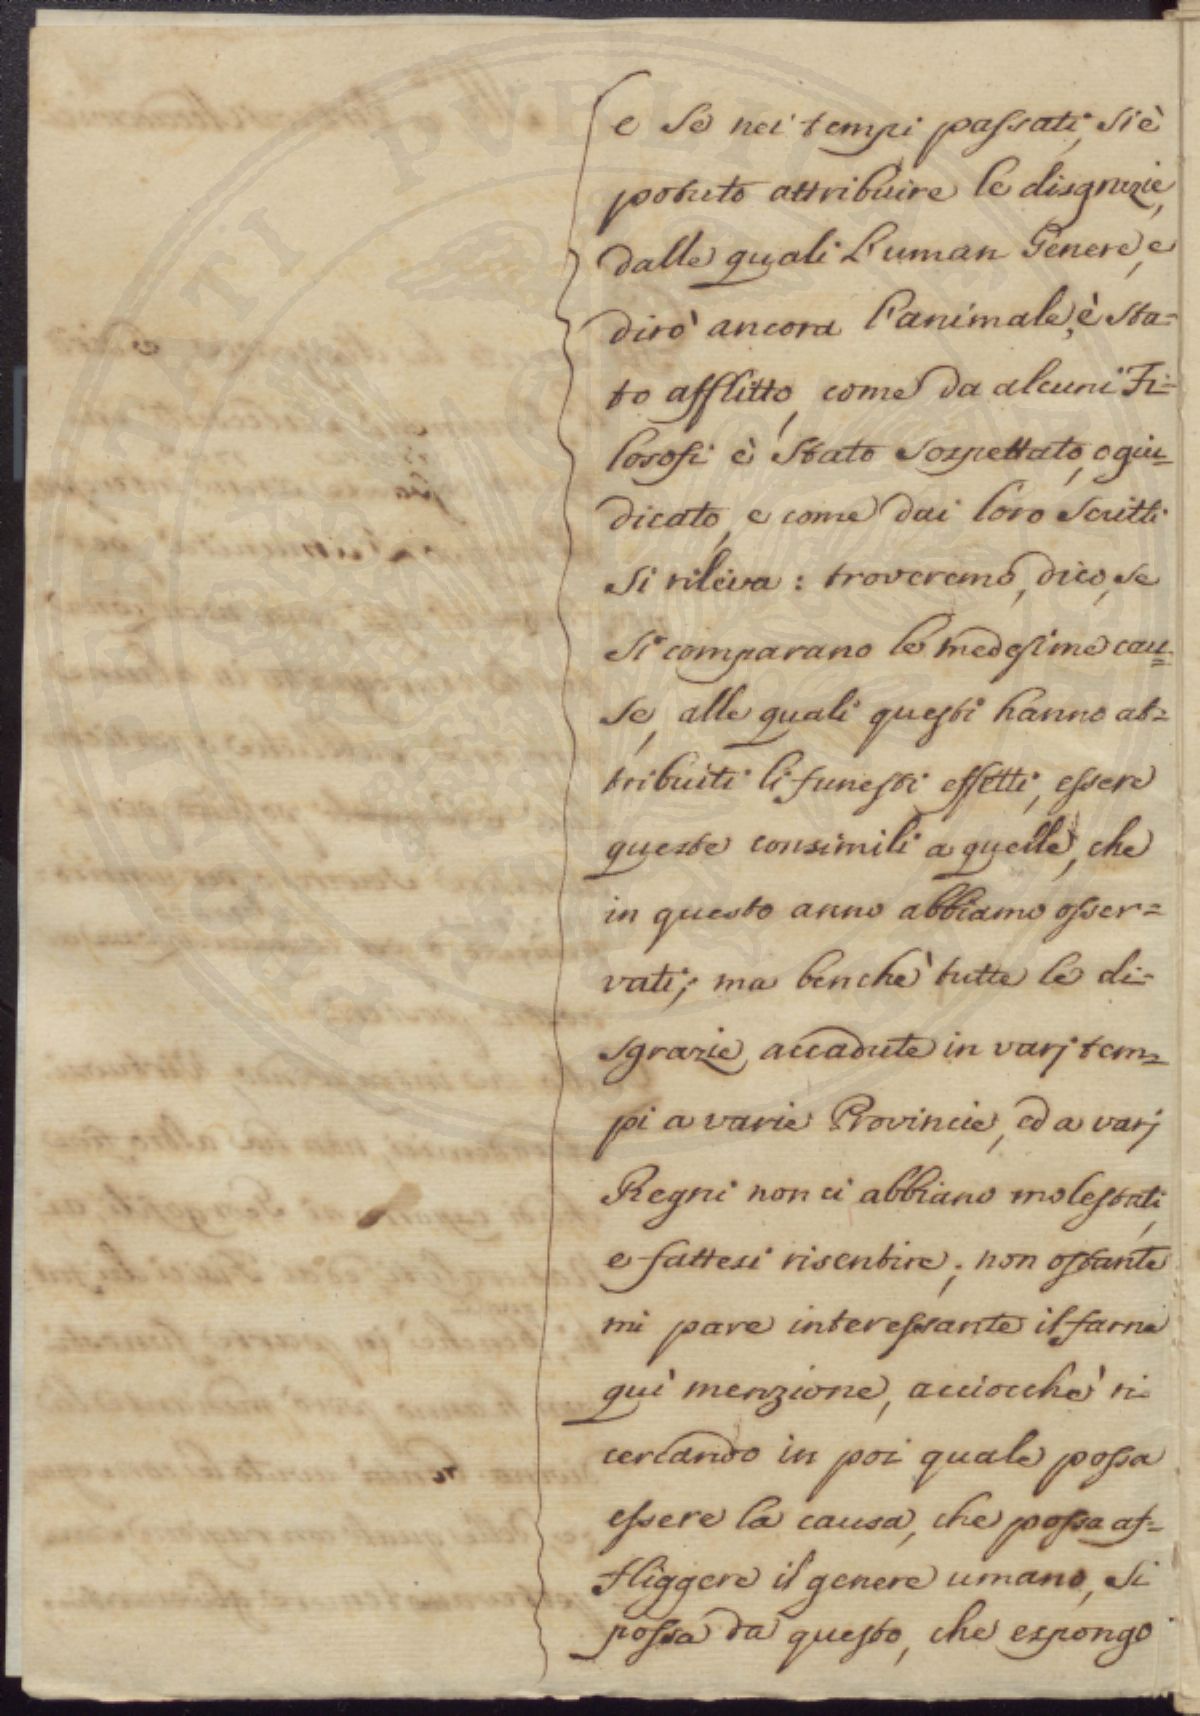 e se nei tempi passati, si è
potuto attribuire le disgrazie,
dalle quali l'uman Genere, e
dirò ancora l'animale, è sta=
to afflitto, come da alcuni Fi=
losofi è stato sospettato, o giu=
dicato, e come dai loro scritti
si rileva: troveremo, dico, se
si comparano le medesime cau=
se, alle quali questi hanno at=
tribuiti li funesti effetti, essere
queste consimili a quelle, che
in questo anno abbiamo osser=
vati; ma benchè tutte le di=
sgrazie, accadute in varj tem=
pi a varie Provincie, ed a varj
Regni non ci abbiano molestati,
e fattesi risentire; non ostante
mi pare interessante il farne
quì menzione, acciocchè ri=
cercando in poi quale possa
essere la causa, che possa af=
fliggere il genere umano, si
possa da questo, che espongo